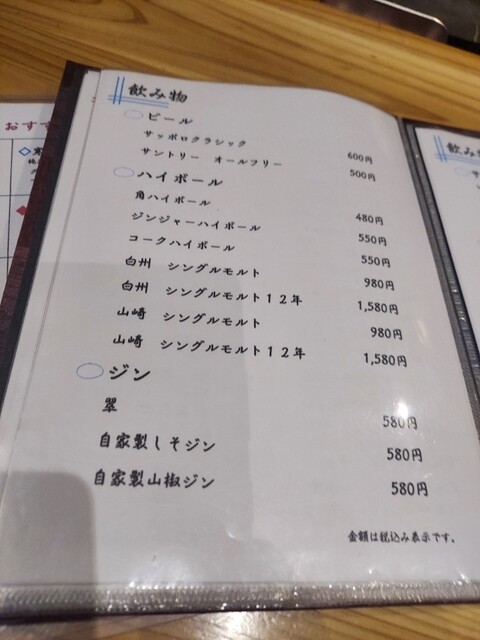 飲み物
ビール
サッポロクラシック 600円
サントリー オールフリー 500円
ハイボール
角ハイボール 480円
ジンジャーハイボール 550円
コークハイボール 550円
白州 シングルモルト 980円
白州 シングルモルト12年 1,580円
山崎 シングルモルト 980円
山崎 シングルモルト12年 1,580円
ジン
翠 580円
自家製しそジン 580円
自家製山椒ジン 580円
金額は税込み表示です。
おすす
飲み物